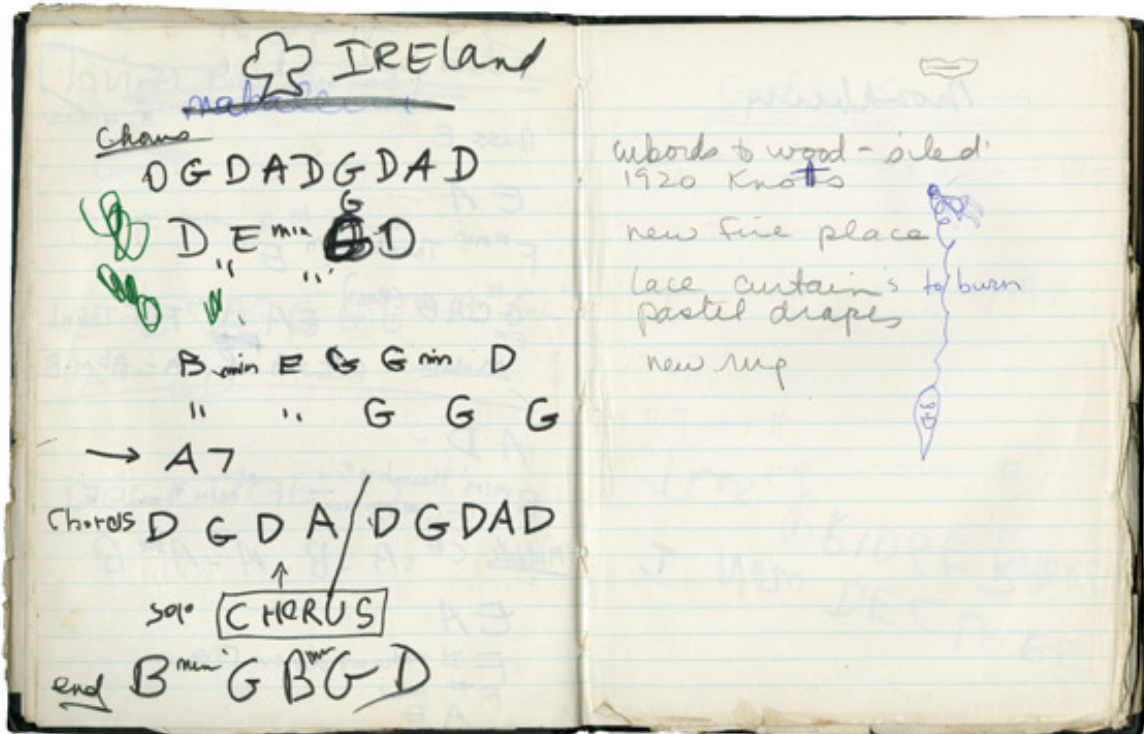 IRELand
Chorus
D G D A D G D A D
G
D E min D
" "
B min E G G min D
" " G G G
→ A7
Chords D G D A / D G D A D
↑
solo CHORUS
end B min G B min G D
cubords to wood - oiled
1920 Knotts
new fire place
lace curtain's to burn
pastel drapes
new rug